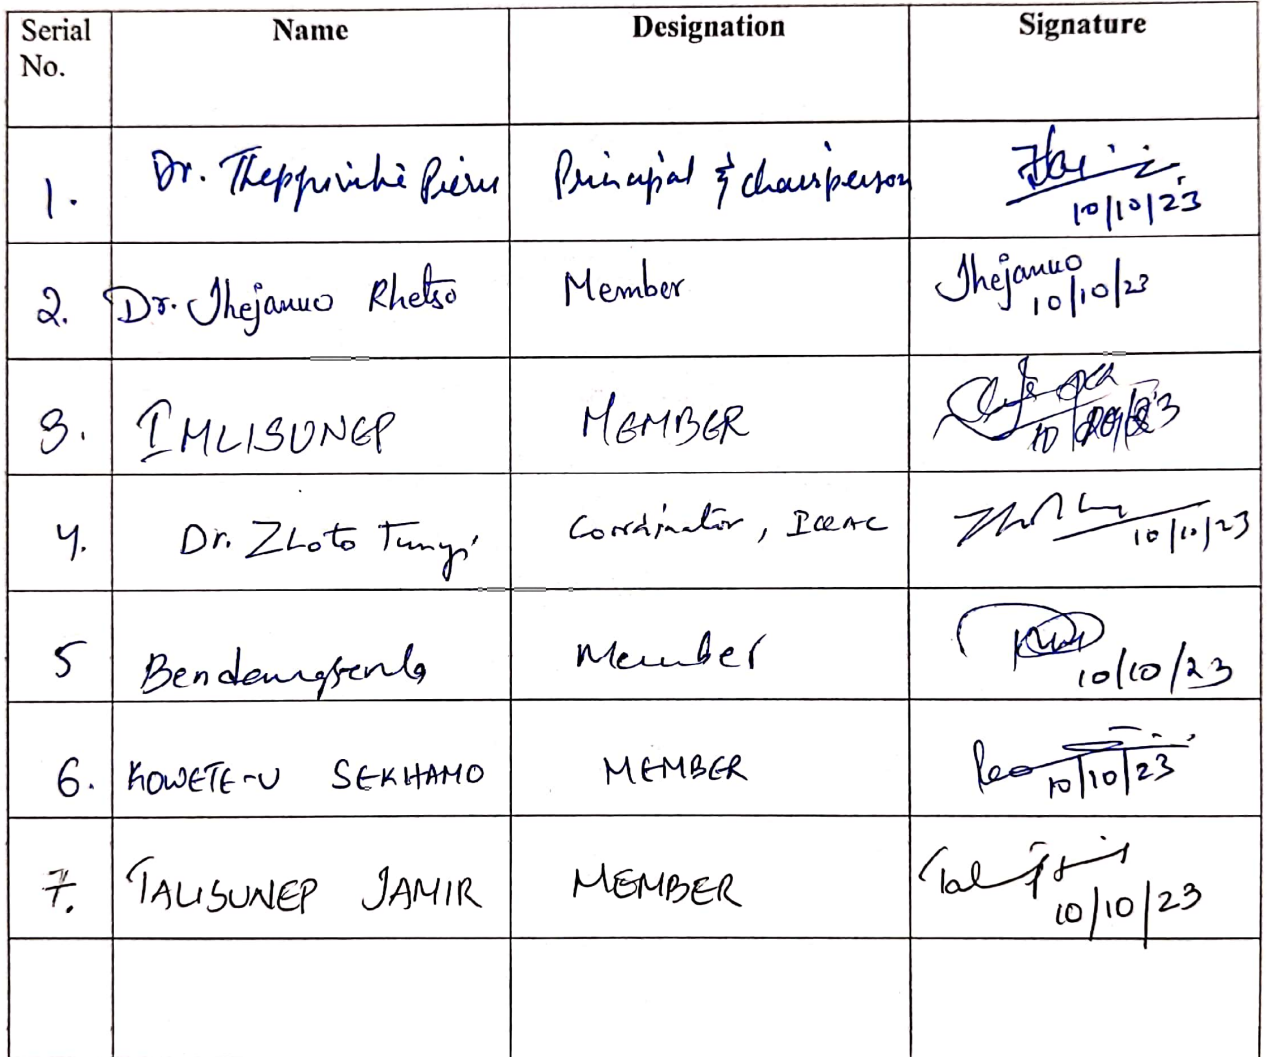 Serial No. Name Designation Signature
1. Dr. Theppivihé Pieru Principal & chairperson 10/10/23
2. Dr. Jhejanuo Rhetso Member Jhejanuo 10/10/23
3. IMLISUNEP MEMBER 10
4. Dr. Zhoto Tunyi Coordinator, 10/10/23
5 Bendangsenla Member 10/10/23
6. KOWETE-U SEKHAMO MEMBER 10/10/23
7. TALISUNEP JAMIR MEMBER Tal 10/10/23